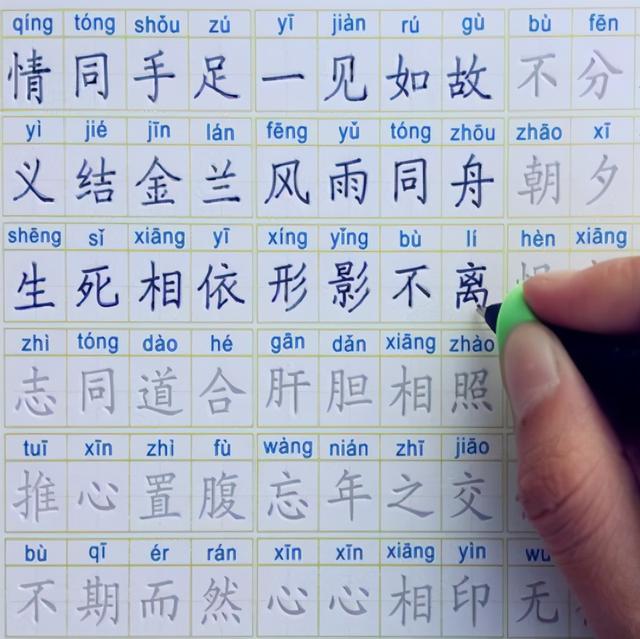 qíng tóng shǒu zú yī jiàn rú gù bù fēn
情同手足 一见如故 不分
yì jié jīn lán fēng yǔ tóng zhōu zhāo xī
义结金兰 风雨同舟 朝夕
shēng sǐ xiāng yī xíng yǐng bù lí hèn xiāng
生死相依 形影不离
zhì tóng dào hé gān dǎn xiāng zhào
志同道合 肝胆相照
tuī xīn zhì fù wàng nián zhī jiāo
推心置腹 忘年之交
bù qī ér rán xīn xīn xiāng yìn wú
不期而然 心心相印 无